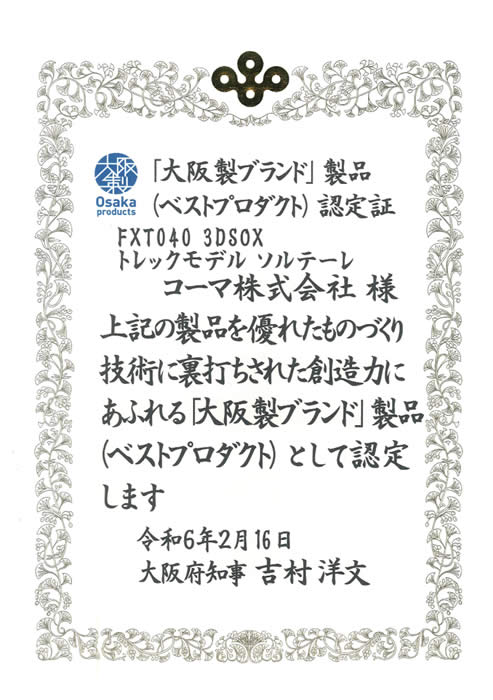 大阪製
Osaka
products
「大阪製ブランド」製品
(ベストプロダクト) 認定証
FXT040 3DSOX
トレックモデル ソルテーレ
コーマ株式会社 様
上記の製品を優れたものづくり
技術に裏打ちされた創造力に
あふれる「大阪製ブランド」製品
(ベストプロダクト) として認定
します
令和6年2月16日
大阪府知事 吉村洋文